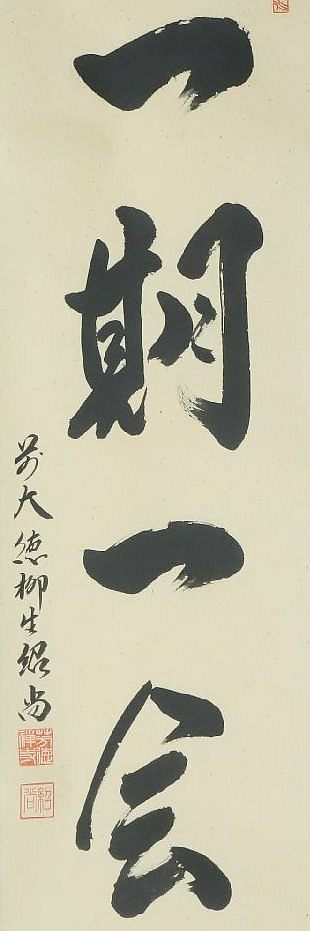 一期一会
前大徳柳生紹尚
紹尚